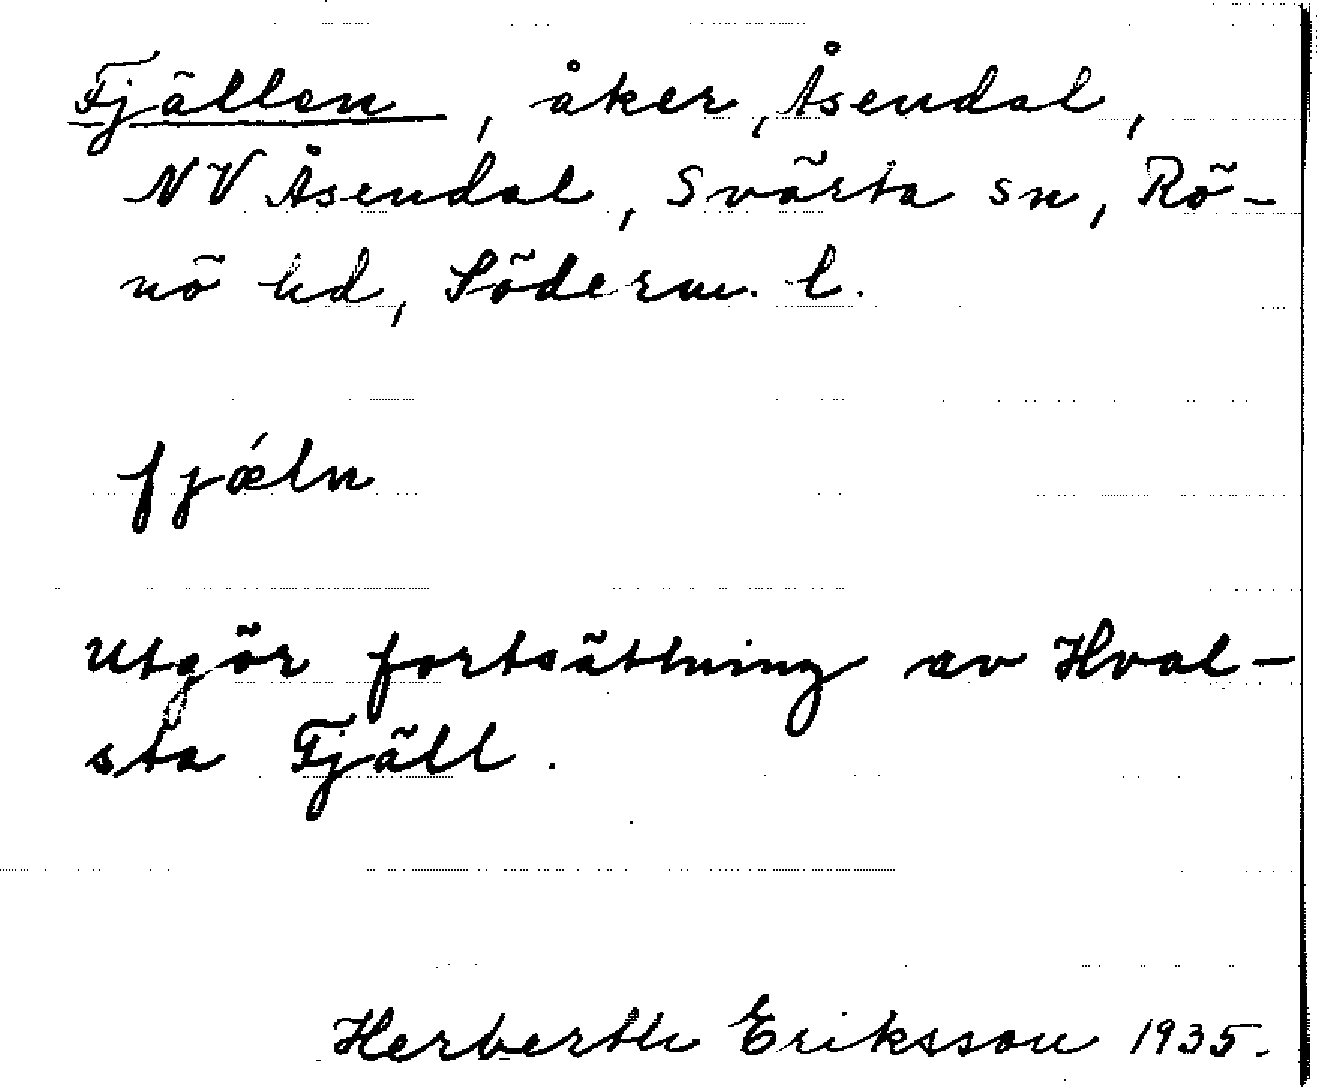 Fjällen, åker, Åsendal,
NV Åsendal, Svärta sn, Rö-
nö hd, Söderm. l.
fjǽln
Utgör fortsättning av Hval-
sta Fjäll.
Herberth Eriksson 1935.